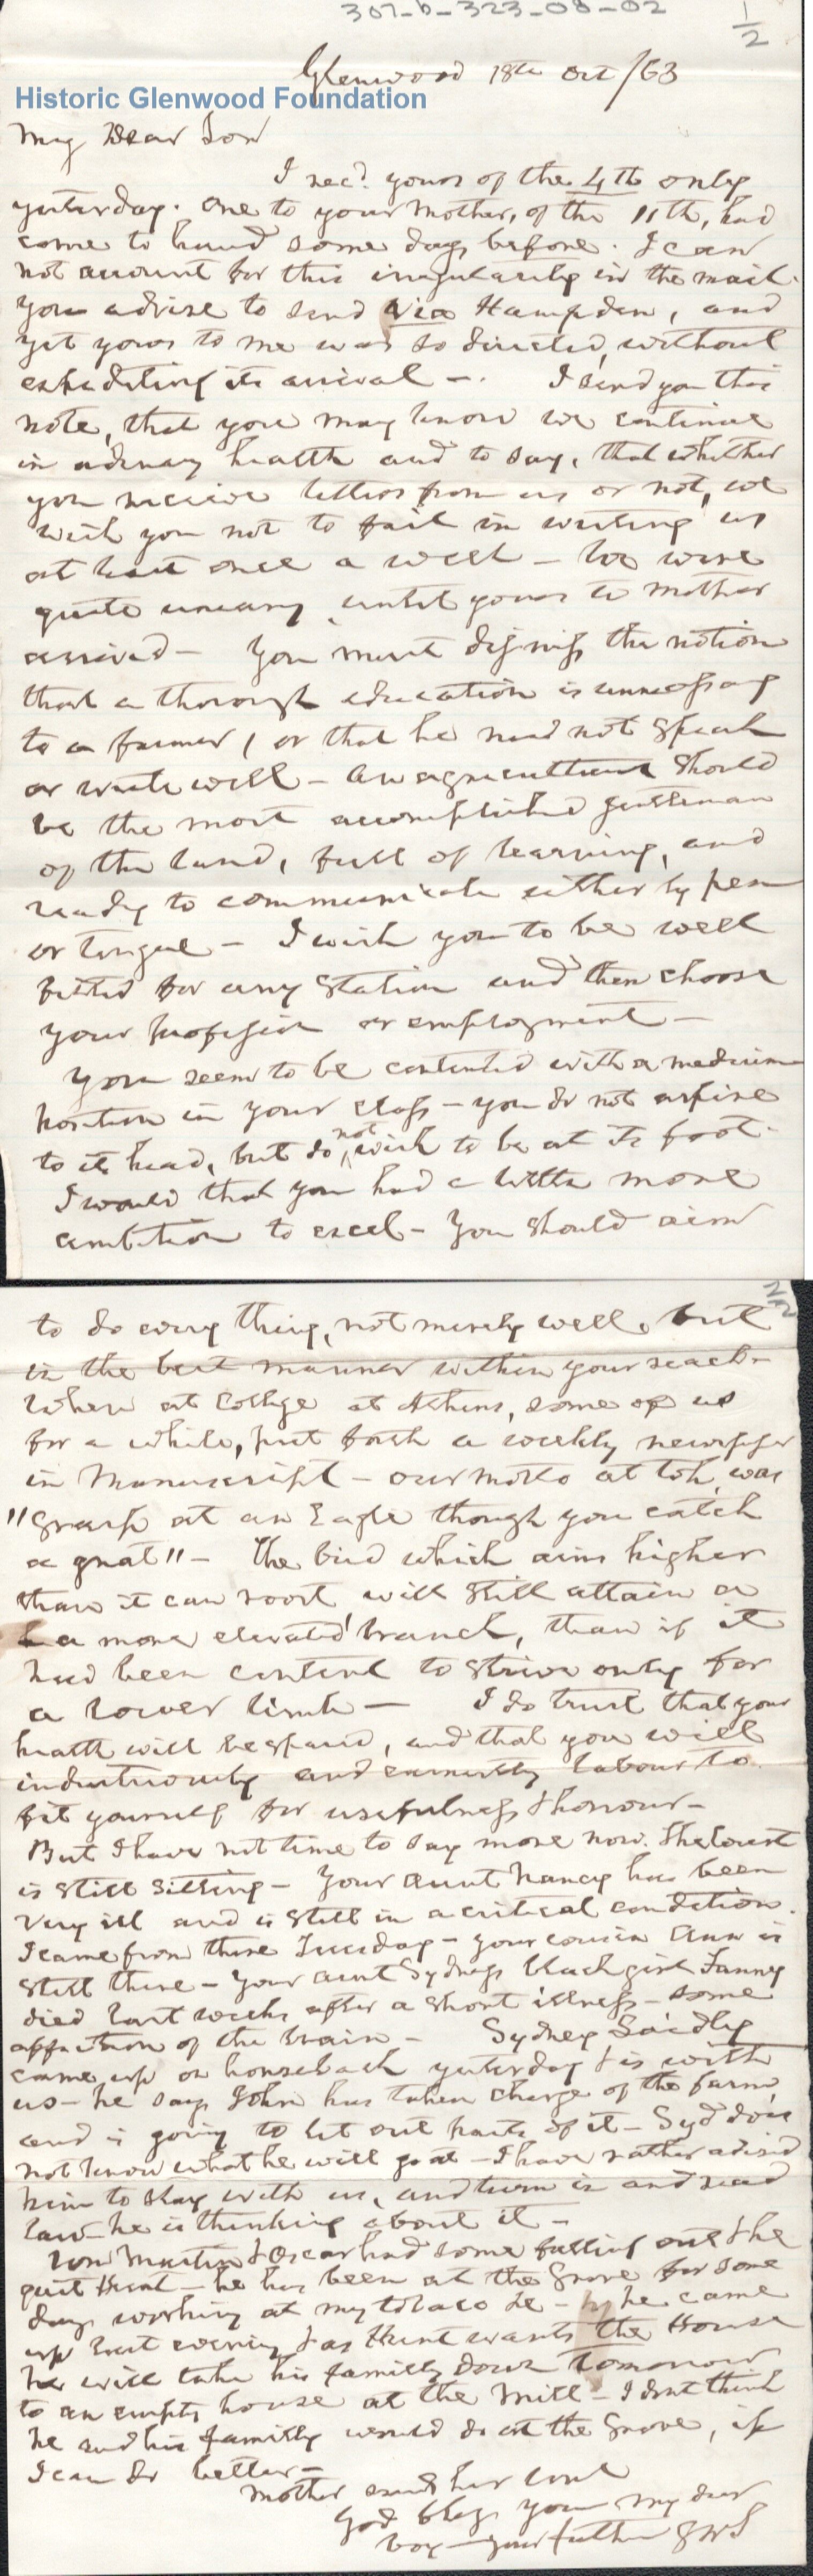 307-b-323-08-02
1/2
Glenwood 18th Oct/63
Historic Glenwood Foundation
My Dear Son
I recd. yours of the 4th only
yesterday. One to your Mother, of the 11th, had
come to hand some days before. I can
not account for this irregularity in the mail.
You advise to send Via Hampden, and
yet yours to me was so directed, without
expediting its arrival —. I send you this
note, that you may know we continue
in ordinary health and to say, that whether
you receive letters from us or not, we
wish you not to fail in writing us
at least once a week — We were
quite uneasy until yours to Mother
arrived — You must dismiss the notion
that a thorough education is unnecessary
to a farmer, or that he need not speak
or write well — An agriculturist should
be the most accomplished gentleman
of the land, full of learning, and
ready to communicate either by pen
or tongue — I wish you to be well
fitted for any Station and then choose
your profession or employment —
You seem to be contented with a medium
position in your class — you do not aspire
to its head, but do not wish to be at its foot.
I would that you had a little more
ambition to excel — You should aim
2/2
to do every thing, not merely well, but
in the best manner within your reach —
When at College at Athens, some of us
for a while, put forth a weekly newspaper
in Manuscript — our motto was
"Grasp at an Eagle though you catch
a gnat" — The bird which aims higher
than it can roost will still attain a
a more elevated branch, than if it
had been content to strive only for
a lower limb — I do trust that your
health will be spared, and that you will
industriously and earnestly labour to
fit yourself for usefulness & honour —
But I have not time to say more now. The Court
is still sitting — Your Aunt Nancy has been
very ill and is still in a critical condition.
I came from there Tuesday — your cousin Ann is
still there — Your aunt Sydney's black girl Fanny
died last week after a short illness — some
affection of the brain — Sydney
came up on horseback yesterday & is with
us — he says John has taken charge of the farm,
and is going to let out parts of it — Syd does
not know what he will go at — I have rather advised
him to stay with us, and turn in and read
law — he is thinking about it —
Martin & Oscar had some falling out & he
quit Hunt — he has been at the Grove for some
days working at my tobacco — he came
up last evening & as Hunt wants the House
he will take his family down tomorrow
to an empty house at the Mill — I dont think
he and his family would do at the Grove, if
I can do better —
Mother sends her love
God bless you my dear
boy — your father